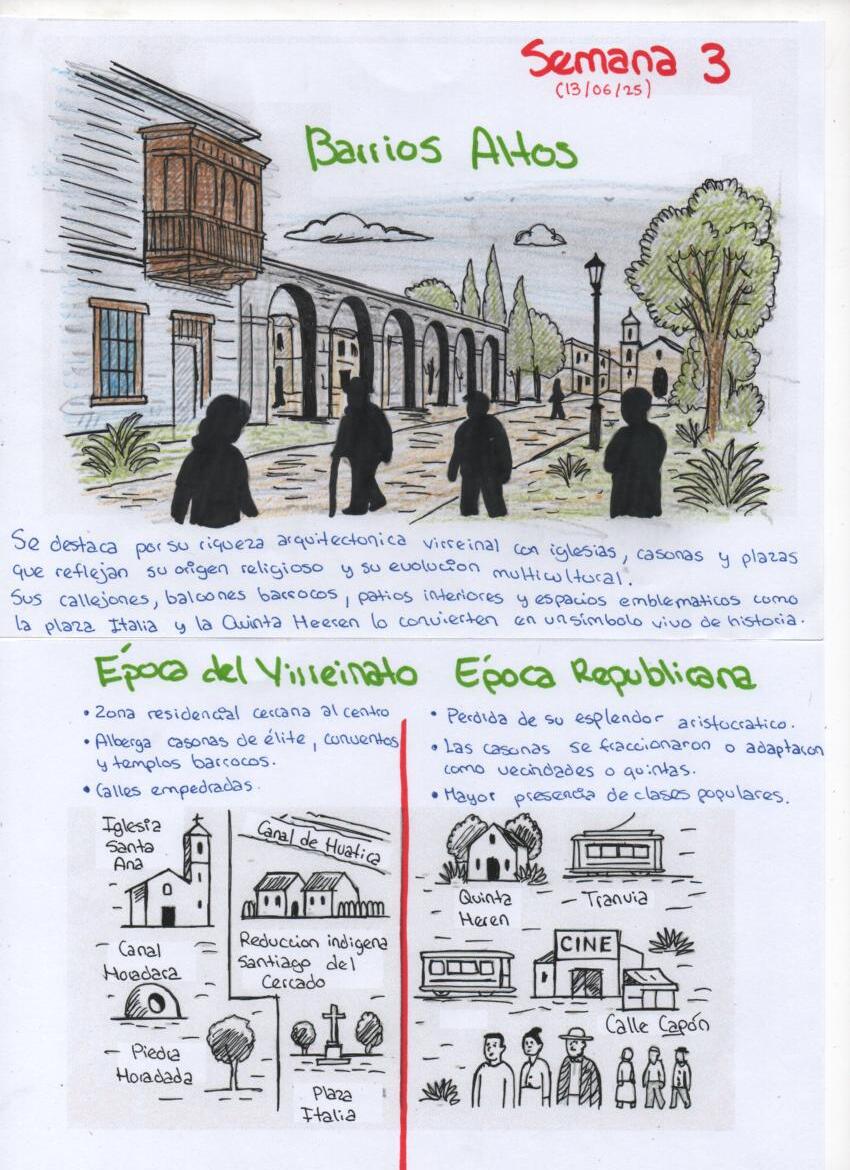 Semana 3
(13/06/25)
Barrios Altos
Se destaca por su riqueza arquitectonica virreinal con iglesias, casonas y plazas
que reflejan su origen religioso y su evolucion multicultural.
Sus callejones, balcones barrocos, patios interiores y espacios emblematicos como
la plaza Italia y la Quinta Heeren lo convierten en un símbolo vivo de historia.
Época del Virreinato
• Zona residencial cercana al centro
• Alberga casonas de élite, conventos
y templos barrocos.
• Calles empedradas.
Iglesia
Santa
Ana
Canal de Huatica
Reduccion indigena
Santiago del
Cercado
Canal
Horadara
Piedra
Horadada
Plaza
Italia
Época Republicana
• Perdida de su esplendor aristocratico.
• Las casonas se fraccionaron o adaptaron
como vecindades o quintas.
• Mayor presencia de clases populares.
Quinta
Heren
Tranvia
CINE
Calle Capón